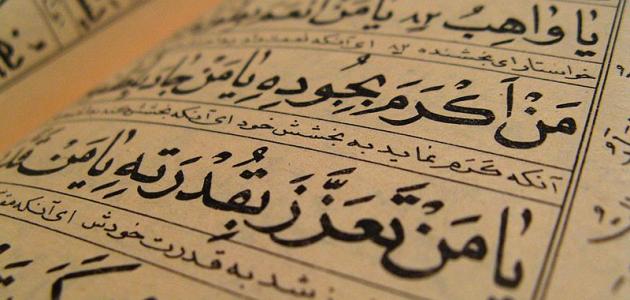 يا واهِبُ ٨٢ يا مَنْ اَنْعَمَ
خواستار ای بخشنده ٨٢ ای آنکه
مَنْ اَكْرَمَ بِجُودِهِ يا مَنْ جادَ
آنکه کرم نماید به بخشش خود ای آنکه بخشش
يا مَنْ تَعَزَّزَ بِقُدْرَتِهِ يا مَنْ
شد به قدرت خودش ای آنکه